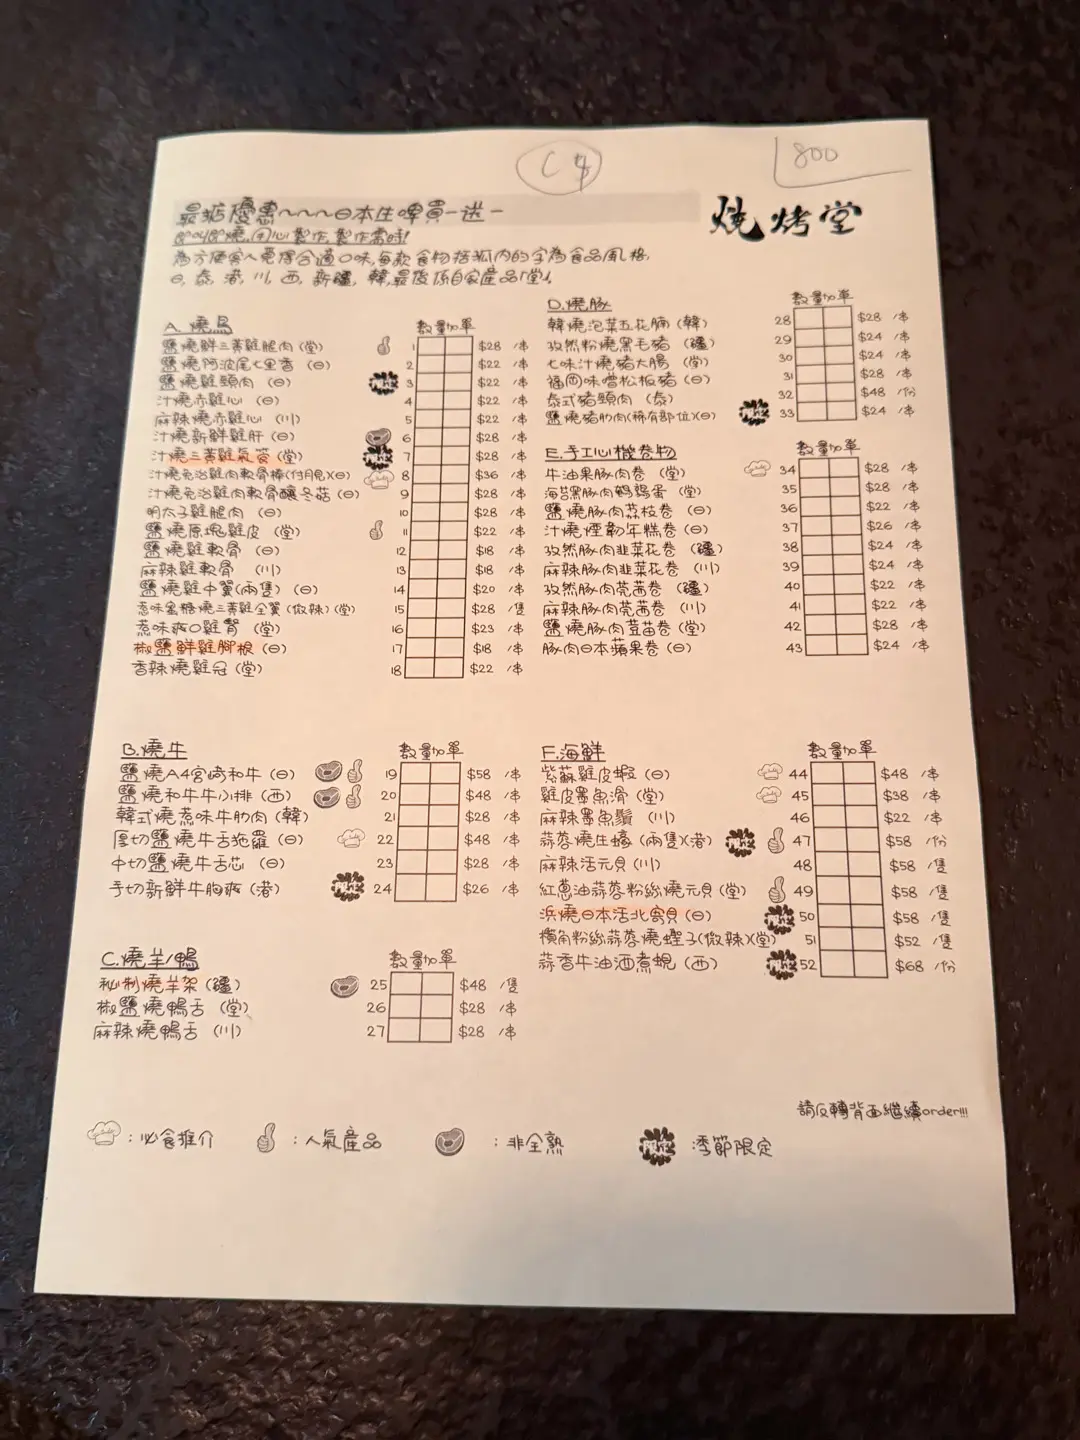 C4
800
最抵優惠～～～日本生啤買一送一
燒烤堂
即叫即燒,用心製作,製作需時!
為方便客人覓得合適口味,每款食物括弧內的字為食品風格
日, 泰, 港, 川, 西, 新疆, 韓,最後係自家産品「堂」
A. 燒鳥 數量加單
鹽燒鮮三黃雞腿肉 (堂) 1 $28 /串
鹽燒阿波尾七里香 (日) 2 $22 /串
鹽燒雞頸肉 (日) 限定 3 $22 /串
汁燒赤雞心 (日) 4 $22 /串
麻辣燒赤雞心 (川) 5 $22 /串
汁燒新鮮雞肝 (日) 6 $28 /串
汁燒三黃雞氣管 (堂) 限定 7 $28 /串
汁燒免治雞肉軟骨棒(付月見)(日) 8 $36 /串
汁燒免治雞肉軟骨釀冬菇 (日) 9 $28 /串
明太子雞腿肉 (日) 10 $28 /串
鹽燒原塊雞皮 (堂) 11 $22 /串
鹽燒雞軟骨 (日) 12 $18 /串
麻辣雞軟骨 (川) 13 $18 /串
鹽燒雞中翼(兩隻) (日) 14 $20 /串
惹味蜜糖燒三黃雞全翼(微辣)(堂) 15 $28 /隻
惹味爽口雞腎 (堂) 16 $23 /串
椒鹽鮮雞腳根 (日) 17 $18 /串
香辣燒雞冠 (堂) 18 $22 /串
B.燒牛 數量加單
鹽燒A4宮崎和牛 (日) 19 $58 /串
鹽燒和牛牛小排 (西) 20 $48 /串
韓式燒惹味牛肋肉 (韓) 21 $28 /串
厚切鹽燒牛舌拖羅 (日) 22 $48 /串
中切鹽燒牛舌芯 (日) 23 $28 /串
手切新鮮牛胸爽 (港) 限定 24 $26 /串
C.燒羊/鴨 數量加單
秘制燒羊架 (疆) 25 $48 /隻
椒鹽燒鴨舌 (堂) 26 $28 /串
麻辣燒鴨舌 (川) 27 $28 /串
D.燒豚 數量加單
韓燒泡菜五花腩 (韓) 28 $28 /串
孜然粉燒黑毛豬 (疆) 29 $24 /串
七味汁燒豬大腸 (堂) 30 $24 /串
福岡味噌松板豬 (日) 31 $28 /串
泰式豬頸肉 (泰) 32 $48 /份
鹽燒豬肋肉(稀有部位)(日) 限定 33 $24 /串
E.手工心機卷物 數量加單
牛油果豚肉卷 (堂) 34 $28 /串
海苔黑豚肉鵪鶉蛋 (堂) 35 $28 /串
鹽燒豚肉荔枝卷 (日) 36 $22 /串
汁燒煙韌年糕卷 (日) 37 $26 /串
孜然豚肉韭菜花卷 (疆) 38 $24 /串
麻辣豚肉韭菜花卷 (川) 39 $24 /串
孜然豚肉芫茜卷 (疆) 40 $22 /串
麻辣豚肉芫茜卷 (川) 41 $22 /串
鹽燒豚肉荳苗卷 (堂) 42 $28 /串
豚肉日本蘋果卷 (日) 43 $24 /串
F.海鮮 數量加單
紫蘇雞皮蝦 (日) 44 $48 /串
雞皮墨魚滑 (堂) 45 $38 /串
麻辣墨魚鬚 (川) 46 $22 /串
蒜蓉燒生蠔 (兩隻)(港) 限定 47 $58 /份
麻辣活元貝 (川) 48 $58 /隻
紅蔥油蒜蓉粉絲燒元貝 (堂) 49 $58 /隻
浜燒日本活北寄貝 (日) 限定 50 $58 /隻
欖角粉絲蒜蓉燒蟶子(微辣)(堂) 51 $52 /隻
蒜香牛油酒煮蜆 (西) 限定 52 $68 /份
請反轉背面繼續order!!!
: 必食推介 : 人氣產品 : 非全熟 限定 季節限定